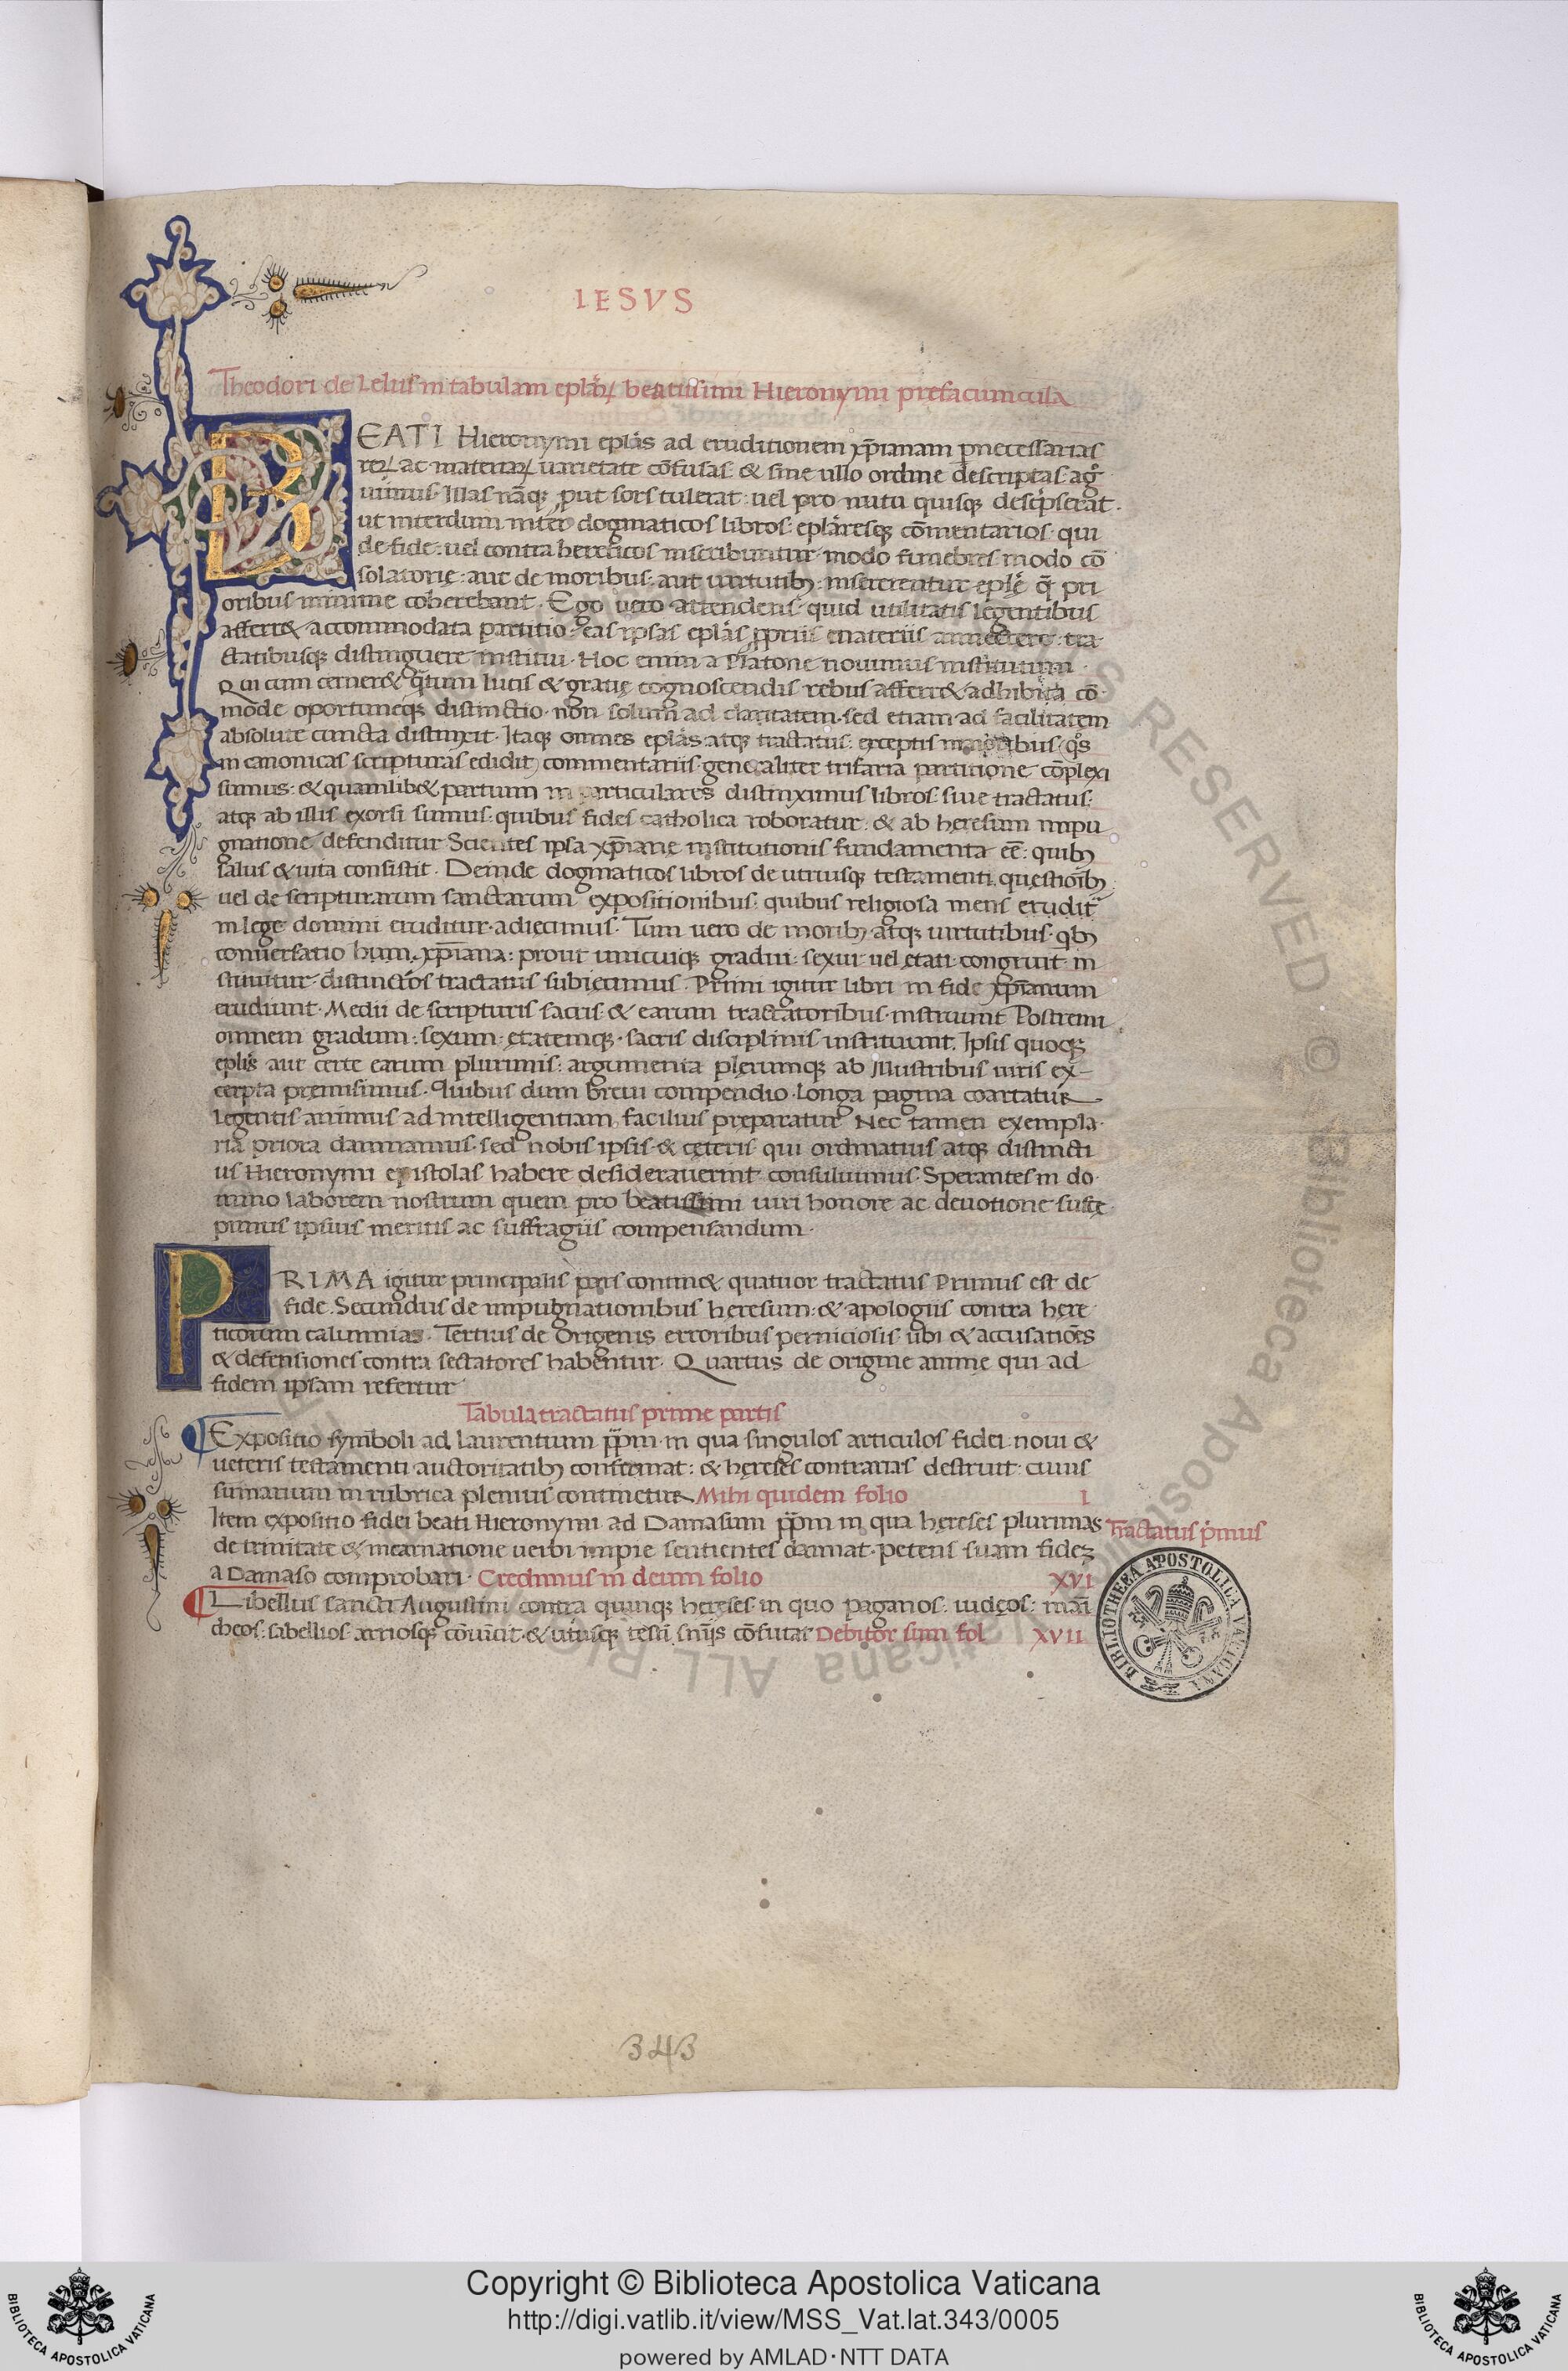 IESVS
Theodori de Lelus in tabulam eplarꝝ beatissimi Hieronymi prefaciuncula
BEATI Hieronymi eplas ad eruditionem xp̄ianam pernecessarias
rerꝝ ac materiarꝝ uarietate cōfusas & sine ullo ordine descriptas
uimus. Illas nāqꝫ prout sors tulerat: uel pro nutu quisqꝫ descripserat.
ut interdum inter dogmaticos libros: eplaresqꝫ cōmentarios qui
de fide: uel contra hereticos inscribuntur modo funebres modo cō
solatorię: aut de moribus: aut uirtutibꝰ: insererentur eplę q̄ pri
oribus minime coherebant. Ego vero attendens quid utilitatis legentibus
afferret accommodata partitio: eas ipsas eplas propriis materiis annectere: tra
ctatibusqꝫ distinguere institui. Hoc enim a Platone nouimus institutum.
Qui cum cerneret q̄tum lucis & gratię cognoscendis rebus afferret adhibita cō
mode oportuneqꝫ distinctio non solum ad claritatem sed etiam ad facilitatem
absolute cuncta distinxit. Itaqꝫ omnes eplas atqꝫ tractatus: exceptis maioribus qͦs
in canonicas scripturas edidit commentariis generaliter trifaria partitione cōplexi
sumus: & quamlibet partium in particulares distinximus libros siue tractatus:
atqꝫ ab illis exorsi sumus quibus fides catholica roboratur: & ab heresum impu
gnatione defenditur Scientes ipsa xp̄iane institutionis fundamenta eē: quibꝰ
salus & uita consistit. Deinde dogmaticos libros de utriusqꝫ testamenti questioībꝰ:
uel de scripturarum sanctarum expositionibus: quibus religiosa mens erudit
in lege domini eruditur adiecimus. Tum uero de moribꝰ atqꝫ uirtutibus qbꝰ
conuersatio hum. xp̄iana: prout unicuiqꝫ gradui: sexui uel ętati congruit in
stituitur distinctos tractatus subiecimus. Primi igitur libri in fide xp̄ianum
erudiunt. Medii de scripturis sacris & earum tractatoribus instruunt Postremi
omnem gradum: sexum: ętatemqꝫ sacris disciplinis instituunt. Ipsis quoqꝫ
eplis aut certe earum plurimis: argumenta plerumqꝫ ab illustribus uiris ex-
cerpta premisimus. Quibus dum breui compendio longa pagina coartatur
legentis animus ad intelligentiam facilius preparatur Nec tamen exempla-
ria priora damnamus sed nobis ipsis & cęteris qui ordinatius atqꝫ distincti
us Hieronymi epistolas habere desiderauerint consuluimus. Sperantes in do
mino laborem nostrum quem pro beatissimi uiri honore ac deuotione suscę
pimus ipsius meritis ac suffragiis compensandum.
PRIMA igitur principalis pars continet quatuor tractatus Primus est de
fide. Secundus de impugnationibus heresum: & apologiis contra here
ticorum calumnias. Tertius de Origenis erroribus perniciosis ubi & accusatiōes
& defensiones contra sectatores habentur. Quartus de origine anime qui ad
fidem ipsam refertur
Tabula tractatus prime partis
Expositio symboli ad Laurentium pp̄m in qua singulos articulos fidei noui &
ueteris testamenti auctoritatibꝰ confirmat: & hęreses contrarias destruit: cuius
sumarium in rubrica plenius continetur Mihi quidem folio I
Item expositio fidei beati Hieronymi ad Damasum pp̄m in qua hereses plurimas
Tractatus pͥmus
de trinitate & incarnatione uerbi impie sentientes damnat petens suam fideꝫ
a Damaso comprobari. Credimus in deum folio XVI
Libellus sancti Augustini contra quinqꝫ hereses in quo paganos: iudęos: mani
cheos: sabellios arriosqꝫ cōuīcit & utriusqꝫ testi snīis cōfutat Debitor sum fol XVII
BIBLIOTHECA APOSTOLICA VATICANA
343
ALL RIGHTS RESERVED © Biblioteca Apostolica Vaticana
Copyright © Biblioteca Apostolica Vaticana
http://digi.vatlib.it/view/MSS_Vat.lat.343/0005
powered by AMLAD·NTT DATA
BIBLIOTECA APOSTOLICA VATICANA
BIBLIOTECA APOSTOLICA VATICANA